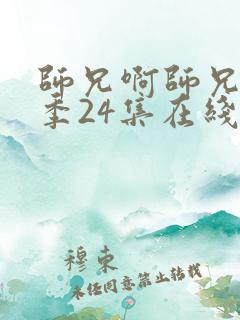 師兄啊師兄
季24集在綫
穆東
未经同意禁止转载